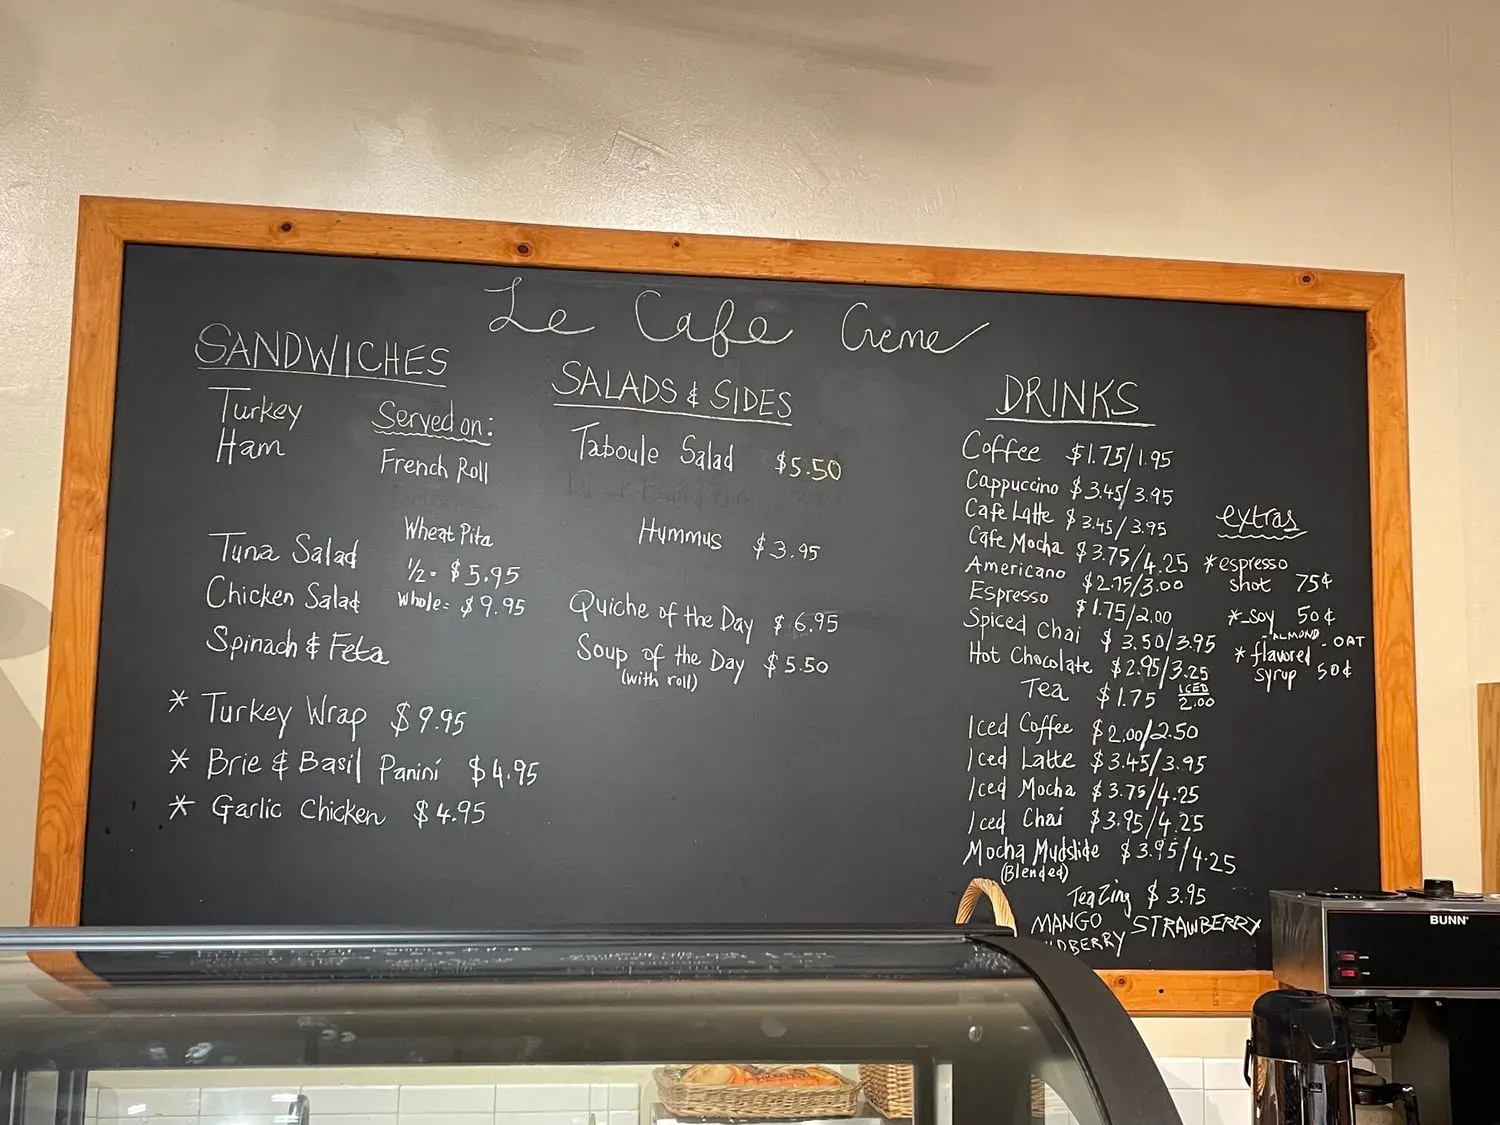 Le Cafe Creme
SANDWICHES
Turkey
Ham
Tuna Salad
Chicken Salad
Spinach & Feta
Served on:
French Roll
Wheat Pita
1/2 = $5.95
Whole = $9.95
* Turkey Wrap $9.95
* Brie & Basil Panini $4.95
* Garlic Chicken $4.95
SALADS & SIDES
Taboule Salad $5.50
Hummus $3.95
Quiche of the Day $6.95
Soup of the Day $5.50
(with roll)
DRINKS
Coffee $1.75/1.95
Cappuccino $3.45/3.95
Cafe Latte $3.45/3.95
Cafe Mocha $3.75/4.25
Americano $2.75/3.00
Espresso $1.75/2.00
Spiced Chai $3.50/3.95
Hot Chocolate $2.95/3.25
Tea $1.75 ICED 2.00
Iced Coffee $2.00/2.50
Iced Latte $3.45/3.95
Iced Mocha $3.75/4.25
Iced Chai $3.95/4.25
Mocha Mudslide $3.95/4.25
(Blended)
Tea Zing $3.95
MANGO STRAWBERRY
extras
* espresso
shot 75¢
* soy 50¢
- ALMOND - OAT
* flavored
syrup 50¢
BUNN